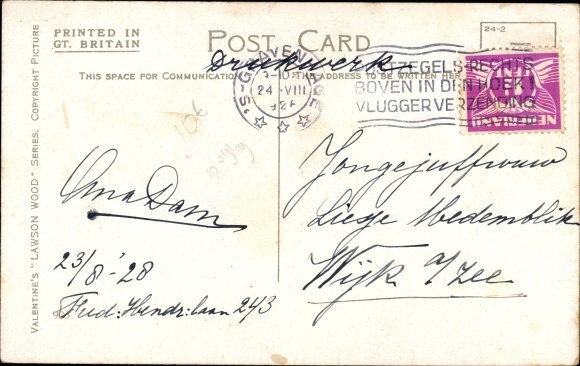 PRINTED IN
GT. BRITAIN
POST CARD
24-2
Drukwerk
THIS SPACE FOR COMMUNICATION
THE ADDRESS TO BE WRITTEN HERE
'S-GRAVENHAGE
24 VIII
ZEGELS RECHTS
BOVEN IN DEN HOEK!
VLUGGER VERZENDING
NEDERLAND
VALENTINE'S "LAWSON WOOD" SERIES, COPYRIGHT PICTURE
Dam
23/8-'28
Fred: Hendr: laan 243
Jongejuffrouw
Liesje Medemblik
Wijk a/Zee